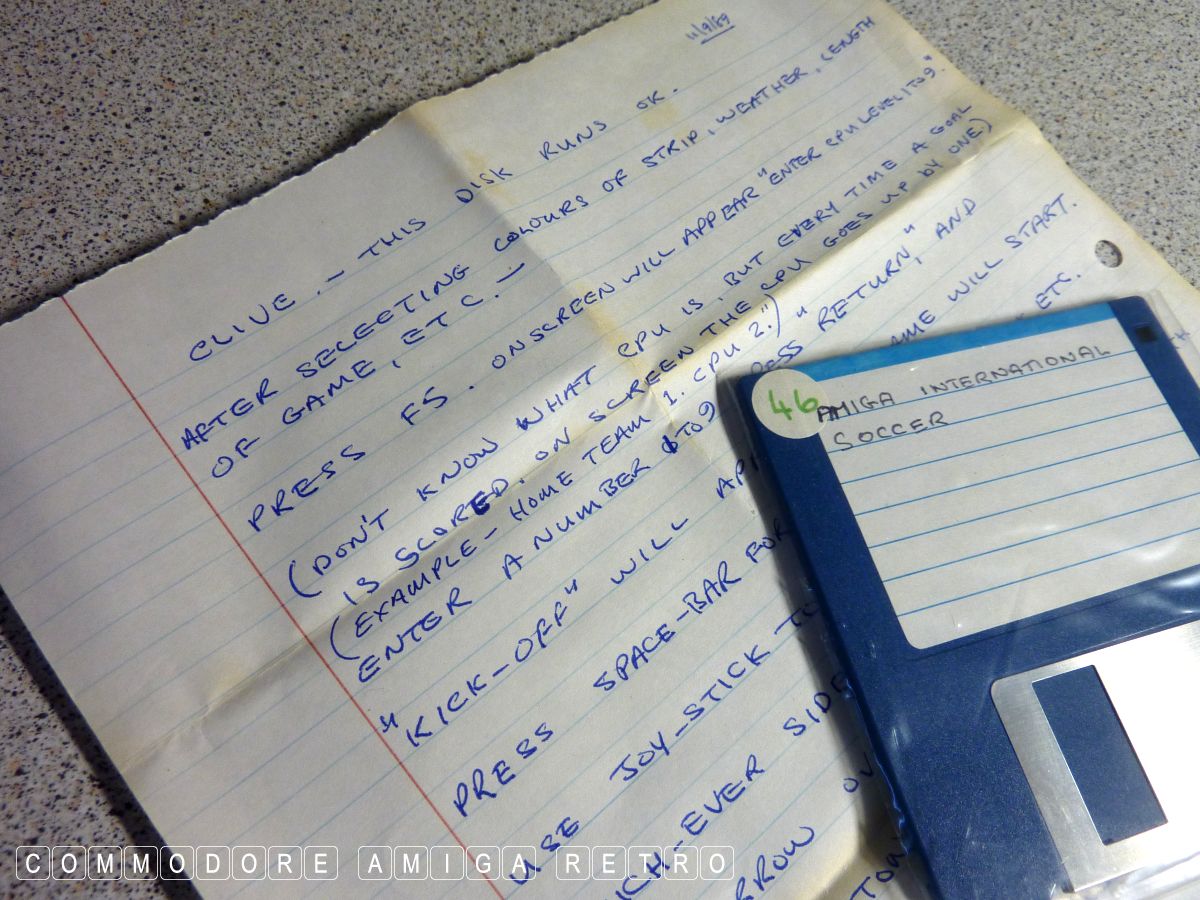 11/9/89
CLIVE. - THIS DISK RUNS OK.
AFTER SELECTING COLOURS OF STRIP, WEATHER, LENGTH
OF GAME, ETC. -
PRESS F5. ONSCREEN WILL APPEAR "ENTER CPU LEVEL 1 TO 9."
(DON'T KNOW WHAT CPU IS, BUT EVERY TIME A GOAL
IS SCORED, ON SCREEN THE CPU GOES UP BY ONE)
(EXAMPLE - HOME TEAM 1. CPU 2.")
ENTER A NUMBER 1 TO 9 RETURN," AND
"KICK-OFF" WILL WILL START.
PRESS SPACE-BAR FOR ETC.
USE JOY-STICK
-EVER SIDE
46
AMIGA INTERNATIONAL
SOCCER
COMMODORE AMIGA RETRO